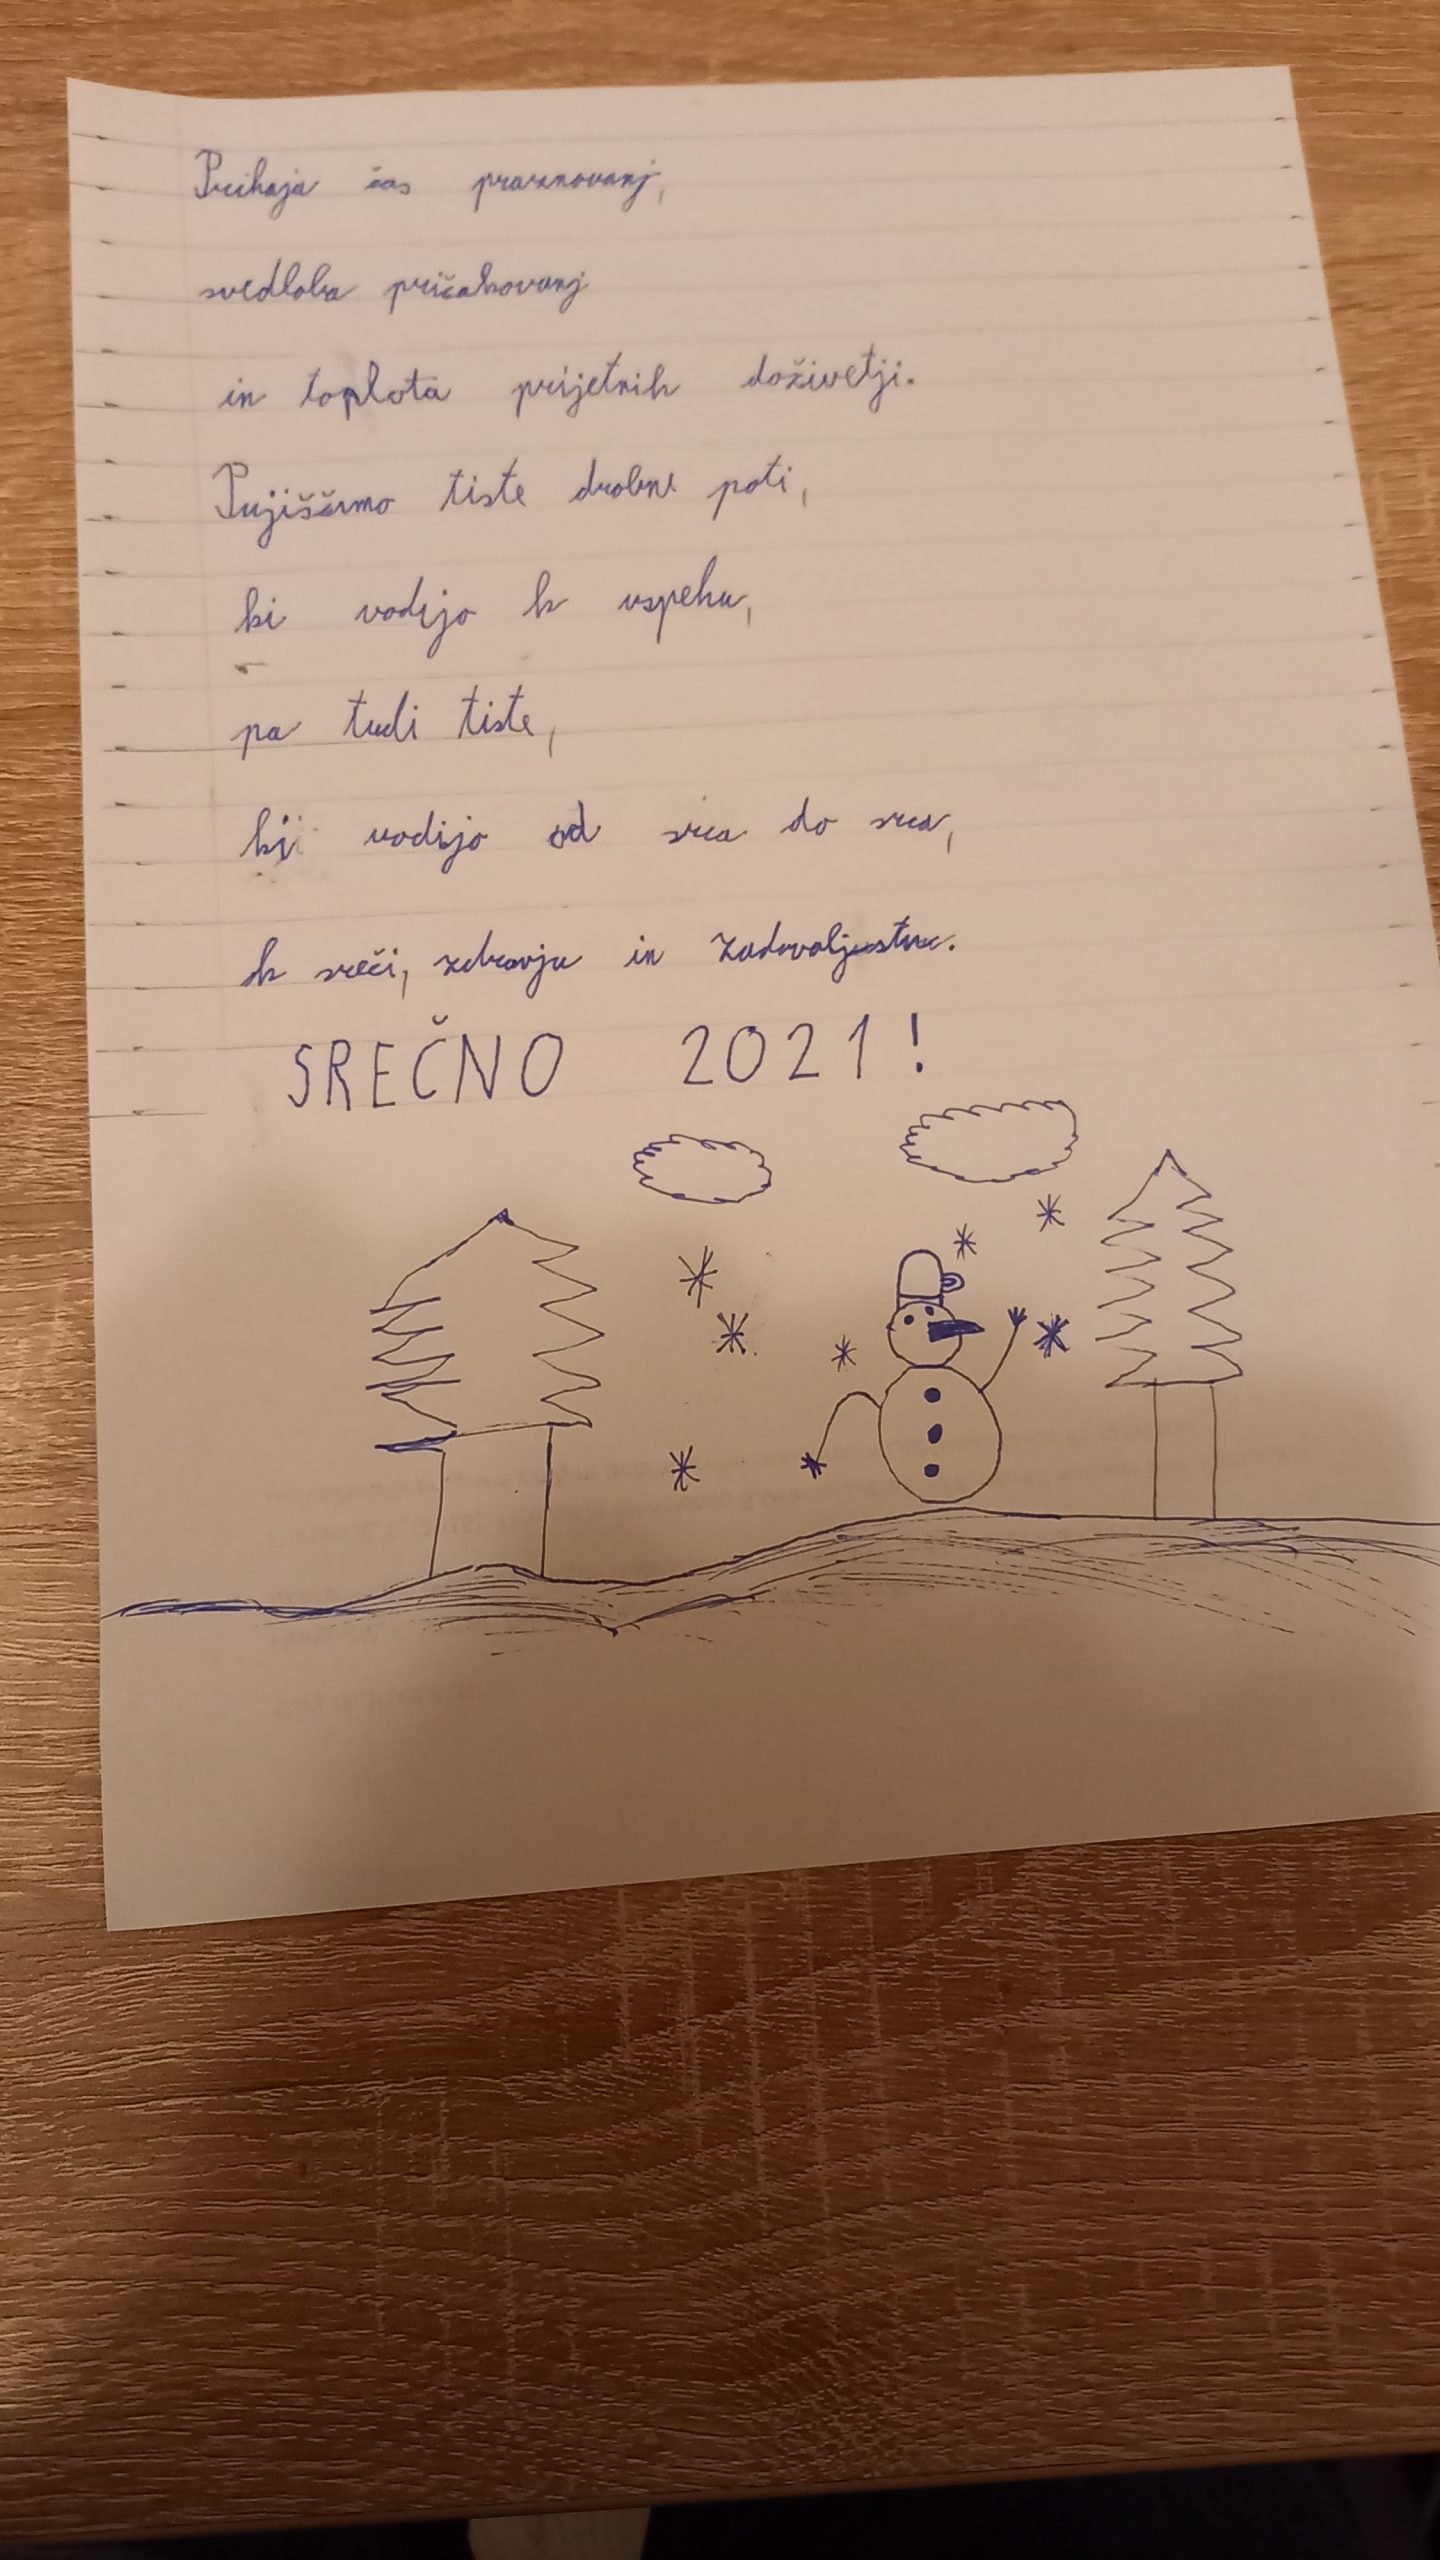 Prihaja čas praznovanj,
svedloba pričakovanj
in toplota prijetnih doživetji.
tiste drobne poti,
ki vodijo k uspehu,
pa tudi tiste,
ki vodijo od srca do srca,
k sreči, zdravju in zadovoljustvu.
SREČNO 2021!